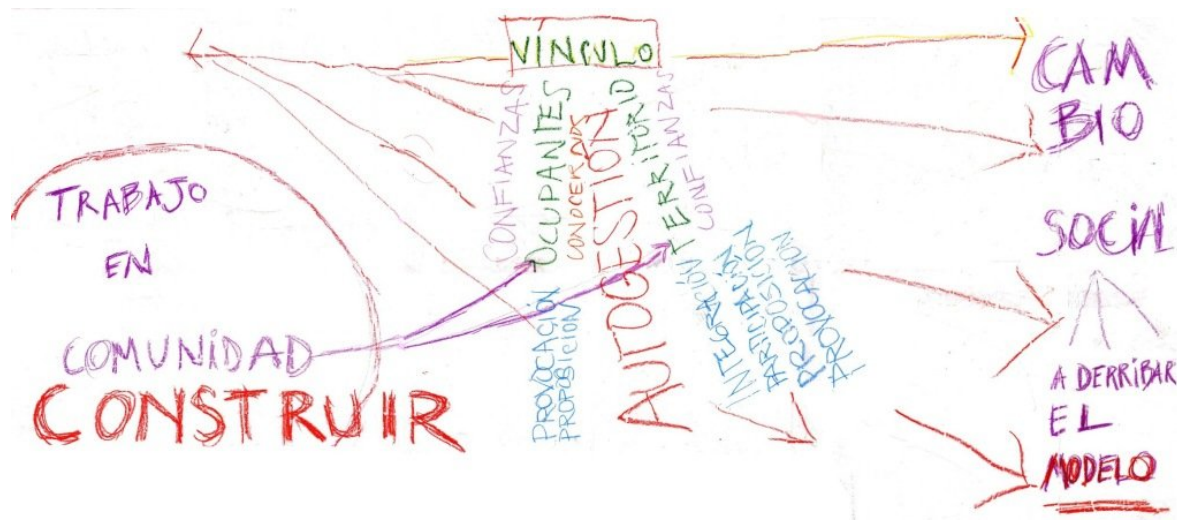 VÍNCULO
TRABAJO
EN
COMUNIDAD
CONSTRUIR
CONFIANZAS
OCUPANTES
CONOCERNOS
AUTOGESTIÓN
TERRITORIO
CONFIANZAS
PROVOCACIÓN
PROPOSICIÓN
INTEGRACIÓN
PARTICIPACIÓN
PROPOSICIÓN
PROVOCACIÓN
CAM
BIO
SOCIAL
A DERRIBAR
EL
MODELO